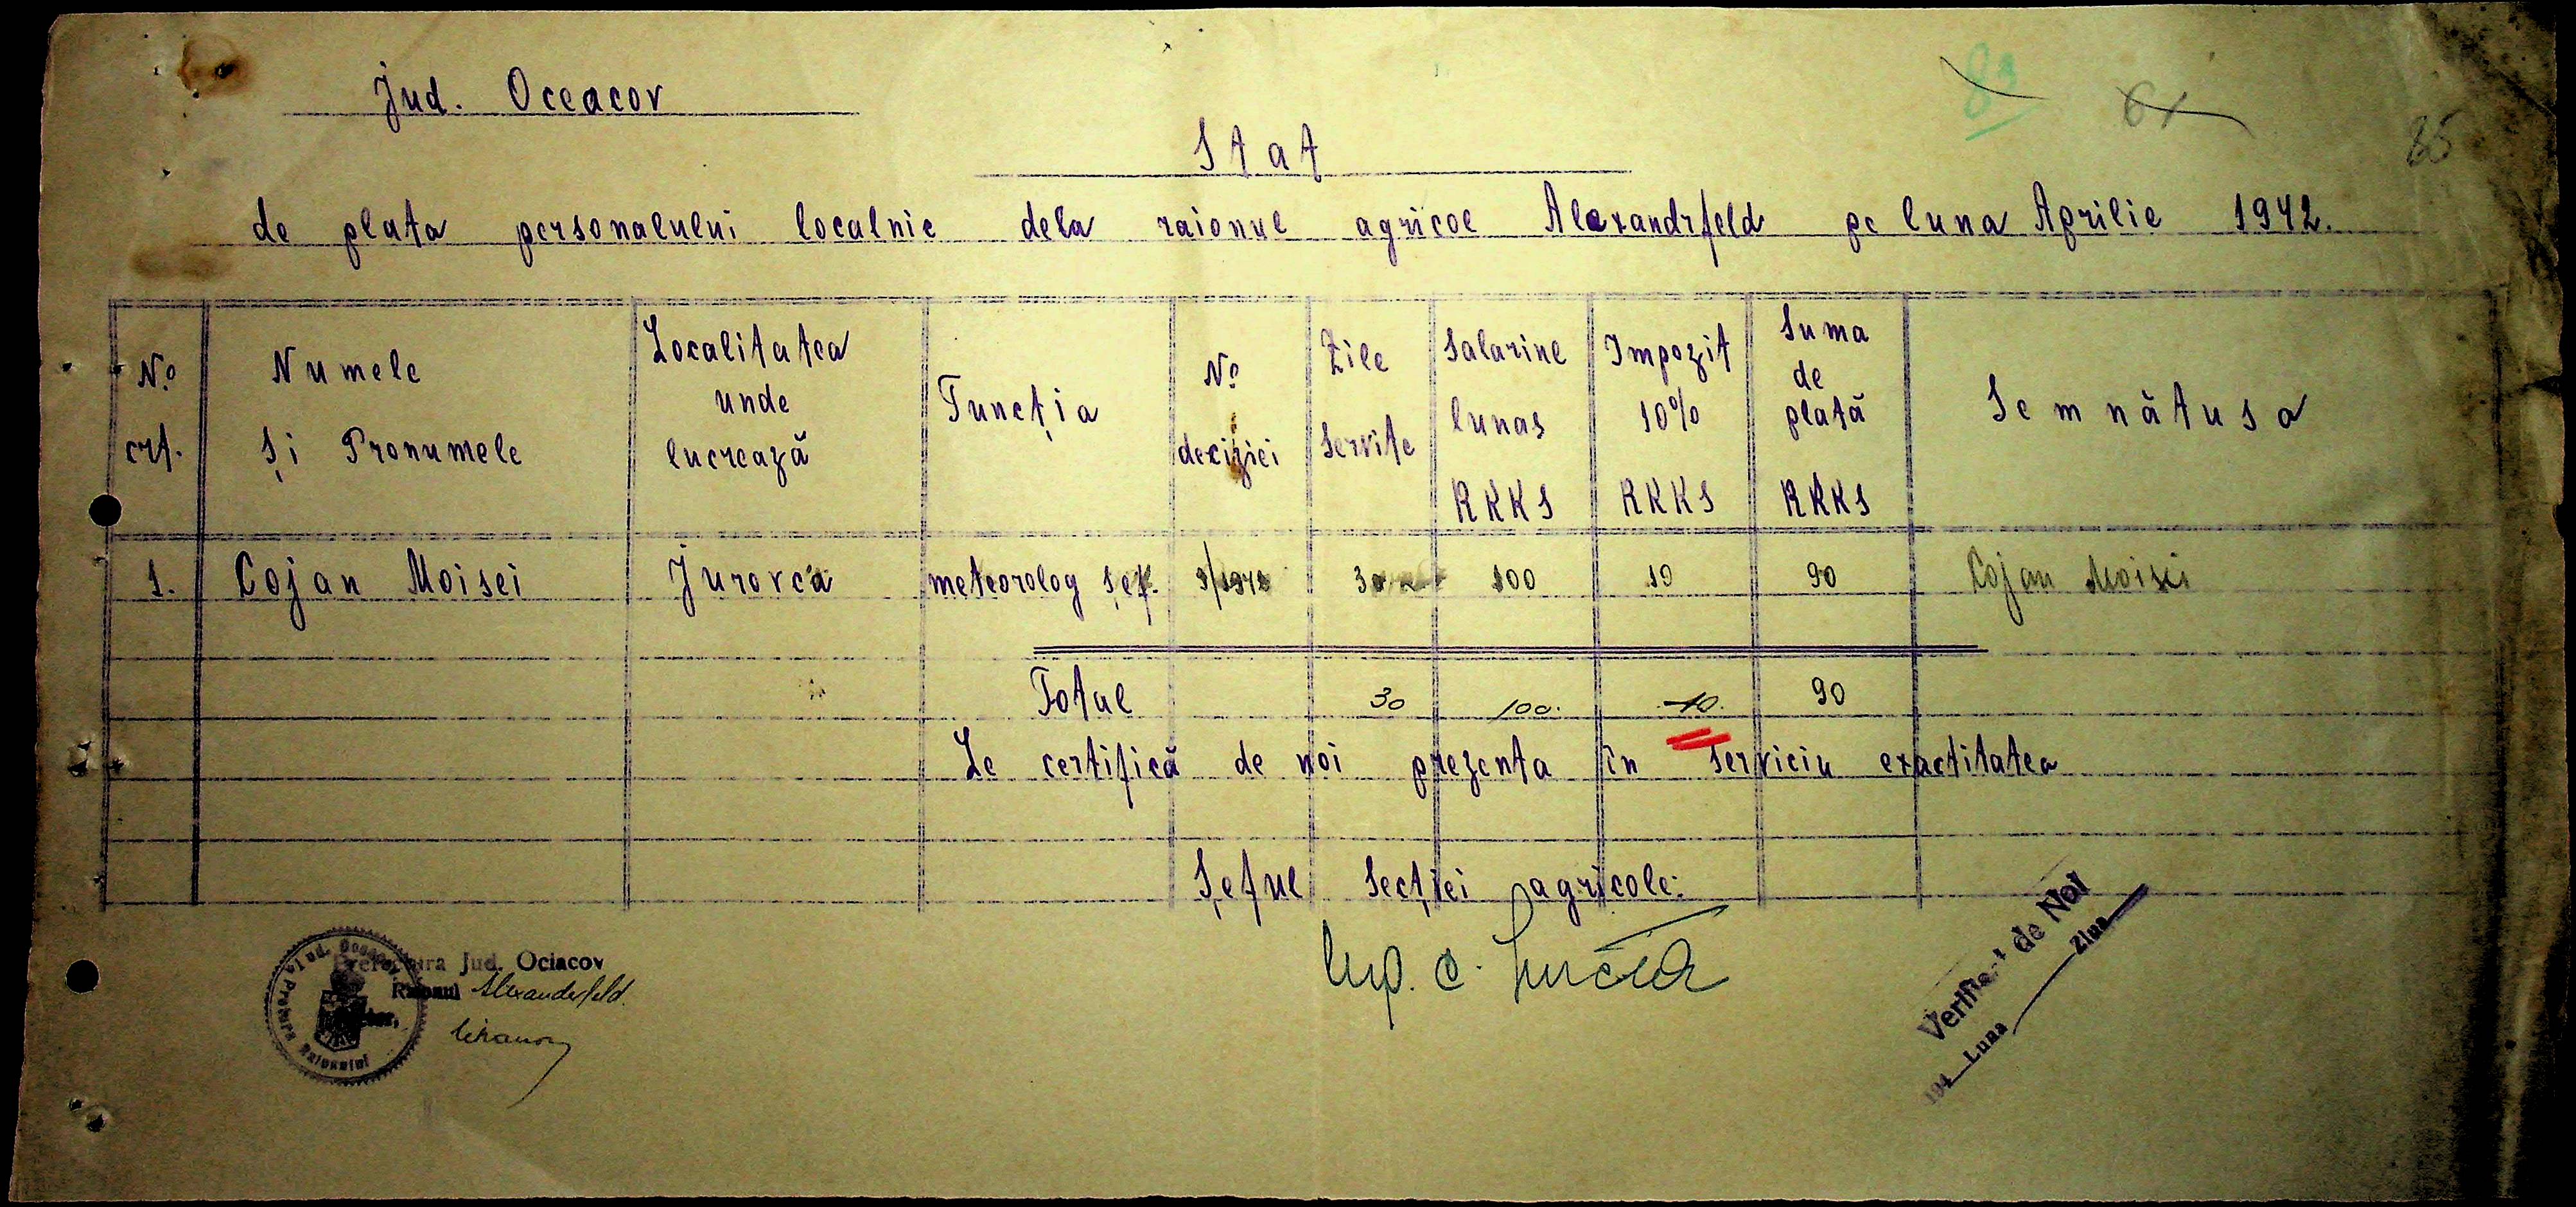 Jud. Oceacov
83
61
85
Stat
de plata personalului localnic dela raionul agricol Alexandrfeld pe luna Aprilie 1942.
No crt.
Numele și Pronumele
Localitatea unde lucrează
Funcția
No deciziei
Zile servite
Salariul lunar RKKS
Impozit 10% RKKS
Suma de plată RKKS
Semnătura
1. Cojan Moisei Jurovca meteorolog șef. 9/1942 30 100 10 90 Cojan Moisei
Total 30 100. 10. 90
Se certifică de noi prezenta în serviciu exactitatea
Șeful Secției agricole:
Prefectura Jud. Ociacov
Raionul Alexanderfeld.
Pretura Raionului
Verificat de Noi
194 Luna Ziua